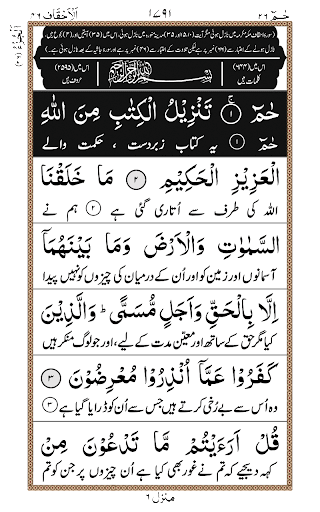 حٰمٓ ٢٦
١٤٩١
اَلْاَحْقَاف ٤٦
اَلْجُزْءُ (٢٦)
بِسْمِ اللّٰهِ الرَّحْمٰنِ الرَّحِيْمِ
حٰمٓ ۚ ١ تَنْزِيْلُ الْكِتٰبِ مِنَ اللّٰهِ
حٰمٓ ١ یہ کتاب زبردست ، حکمت والے
الْعَزِيْزِ الْحَكِيْمِ ٢ مَا خَلَقْنَا
اللہ کی طرف سے اُتاری گئی ہے ٢ ہم نے
السَّمٰوٰتِ وَالْاَرْضَ وَمَا بَيْنَهُمَآ
آسمانوں اور زمین کو اور اُن کے درمیان کی چیزوں کو نہیں پیدا
اِلَّا بِالْحَقِّ وَاَجَلٍ مُّسَمًّى ؕ وَالَّذِيْنَ
کیا مگر حق کے ساتھ اور معیّن مدت کے لیے، اور جو لوگ منکر ہیں
كَفَرُوْا عَمَّآ اُنْذِرُوْا مُعْرِضُوْنَ ٣
وہ اُس سے بے رُخی کرتے ہیں جس سے اُن کو ڈرایا گیا ہے ٣
قُلْ اَرَءَيْتُمْ مَّا تَدْعُوْنَ مِنْ
کہہ دیجیے کہ تم نے غور بھی کیا ہے اُن چیزوں پر جن کو تم
منزل ٦